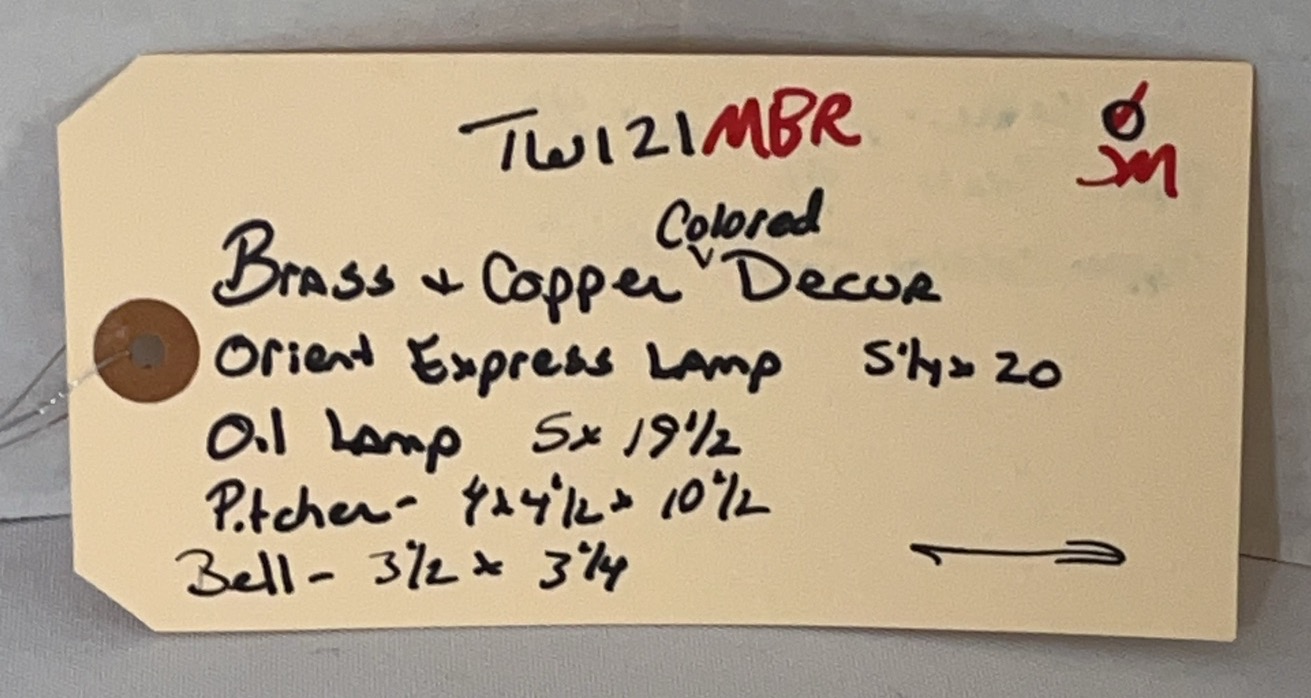 TW121MBR
JM
Brass + Copper Colored Decor
Orient Express Lamp 5 1/4 x 20
Oil Lamp 5 x 19 1/2
Pitcher - 4 x 4 1/2 x 10 1/2
Bell - 3 1/2 x 3 1/4